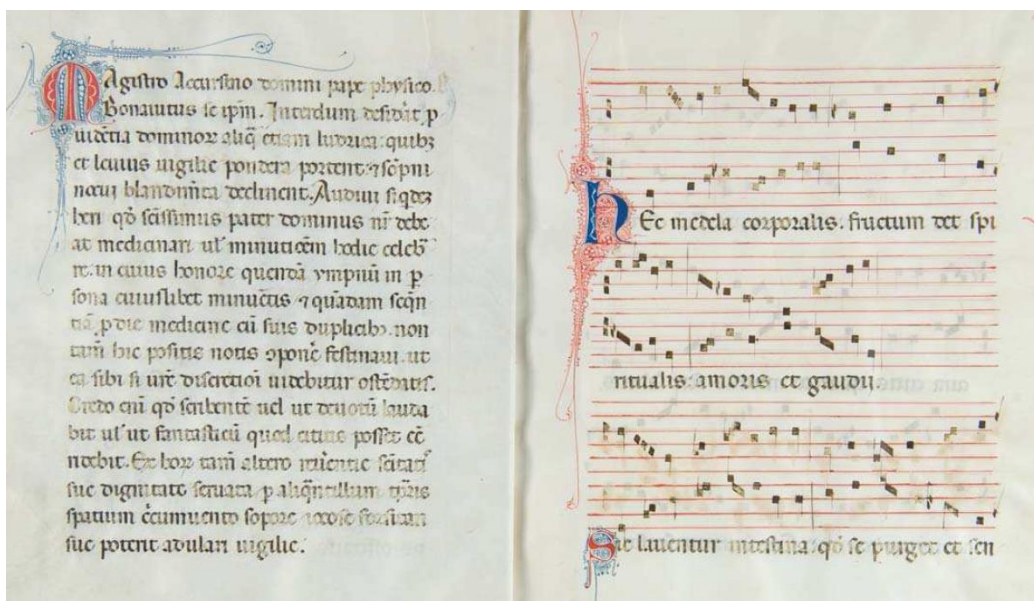 Magistro Accursino domini pape physico.
Bonaiutus se ipm. Interdum desidat p
uidentia dominor aliq etiam ludicra: quibz
et leuius uigilie pondera portent: ⁊ sopni
nocui blandimta declinent. Audiui siqdez
heri qd scissimus pater dominus nr debe
at medicinari ul minutioem hodie celeb
re: in cuius honore quenda ympnu in p
sona cuiuslibet minuetis ⁊ quadam seqn
tia p die medicine cu suis duplicibz. non
tam hic positis notis opone festinaui. ut
ea sibi si ure discretioi uidebitur ostendatis.
Credo eni qd scribente uel ut deuotu lauda
bit ul ut fantasticu quod citius posset ee
ridebit. Ex hoz tam altero reuerentie scitati
sue dignitate seruata p aliqntillum tpris
spatium circumuento sopore iocose forsitan
sue poterit adulari uigilie.
Hec medela corporalis. fructum det spi
ritualis: amoris et gaudii.
Sic lauentur intestina: qd se purget et sen